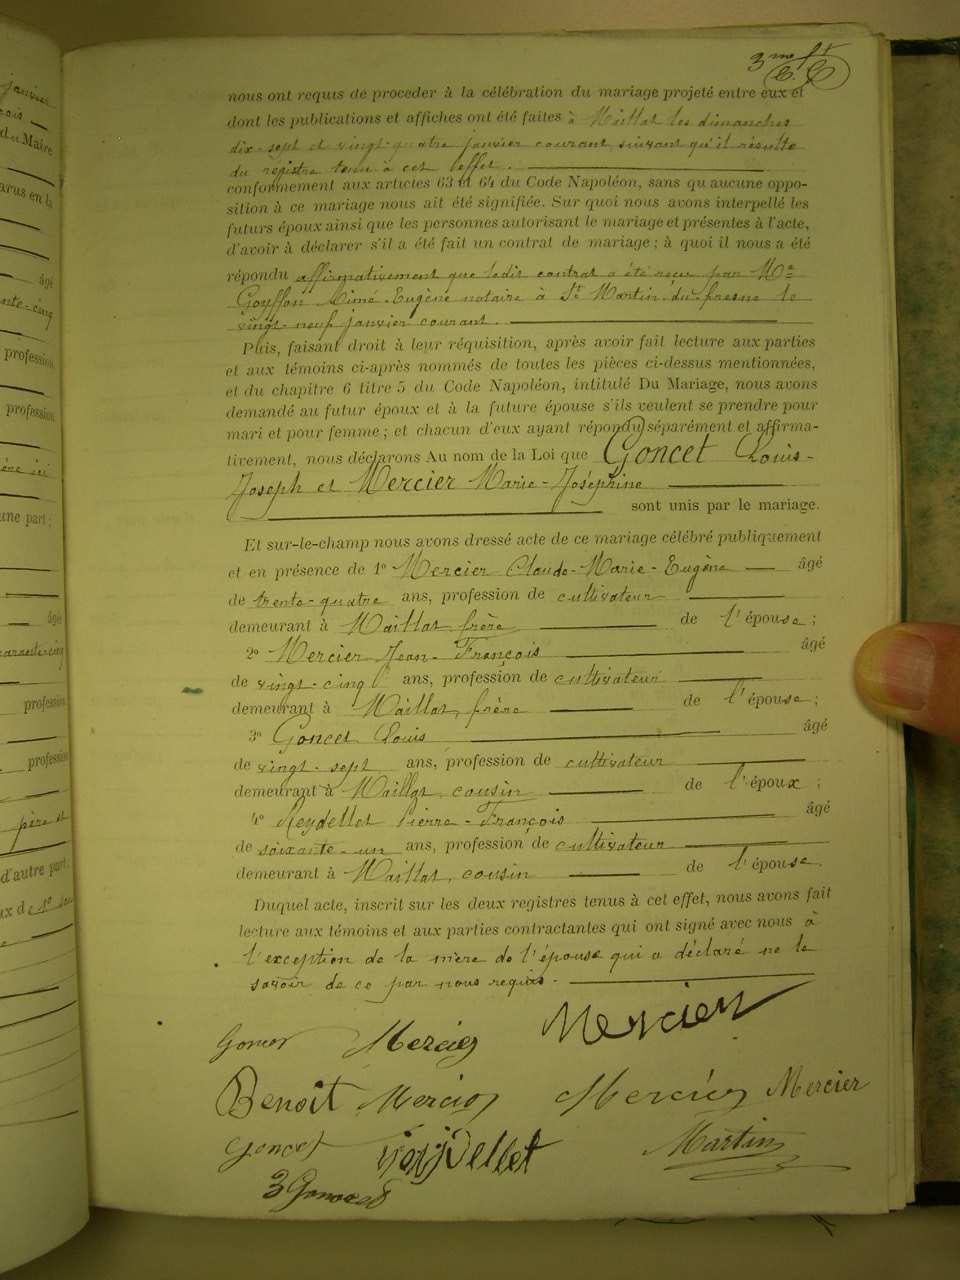 3me ft
nous ont requis de proceder à la célébration du mariage projeté entre eux et
dont les publications et affiches ont été faites à Maillat les dimanches
dix-sept et vingt-quatre janvier courant suivant qu'il résulte
du registre tenu à cet effet.
conformement aux articles 63 et 64 du Code Napoléon, sans qu'aucune oppo-
sition à ce mariage nous ait été signifiée. Sur quoi nous avons interpellé les
futurs époux ainsi que les personnes autorisant le mariage et présentes à l'acte,
d'avoir à déclarer s'il a été fait un contrat de mariage ; à quoi il nous a été
répondu affirmativement que ledit contrat a été reçu par Me
Goyffon Aimé-Eugène notaire à St Martin-du-fresne le
vingt-neuf janvier courant.
Puis, faisant droit à leur réquisition, après avoir fait lecture aux parties
et aux témoins ci-après nommés de toutes les pièces ci-dessus mentionnées,
et du chapitre 6 titre 5 du Code Napoléon, intitulé Du Mariage, nous avons
demandé au futur époux et à la future épouse s'ils veulent se prendre pour
mari et pour femme ; et chacun d'eux ayant répondu séparément et affirma-
tivement, nous déclarons Au nom de la Loi que Goncet Louis-
Joseph et Mercier Marie-Joséphine
sont unis par le mariage.
Et sur-le-champ nous avons dressé acte de ce mariage célébré publiquement
et en présence de 1° Mercier Claude-Marie-Eugène âgé
de trente-quatre ans, profession de cultivateur
demeurant à Maillat, frère de l'épouse ;
2° Mercier Jean-François âgé
de vingt-cinq ans, profession de cultivateur
demeurant à Maillat, frère de l'épouse ;
3° Goncet Louis âgé
de vingt-sept ans, profession de cultivateur
demeurant à Maillat, cousin de l'époux ;
4° Reydellet Pierre-François âgé
de soixante-un ans, profession de cultivateur
demeurant à Maillat, cousin de l'épouse.
Duquel acte, inscrit sur les deux registres tenus à cet effet, nous avons fait
lecture aux témoins et aux parties contractantes qui ont signé avec nous à
l'exception de la mère de l'épouse qui a déclaré ne le
savoir de ce par nous requis.
Goncet Mercier Mercier
Benoit Mercier Mercier Mercier
Goncet Reydellet Martin